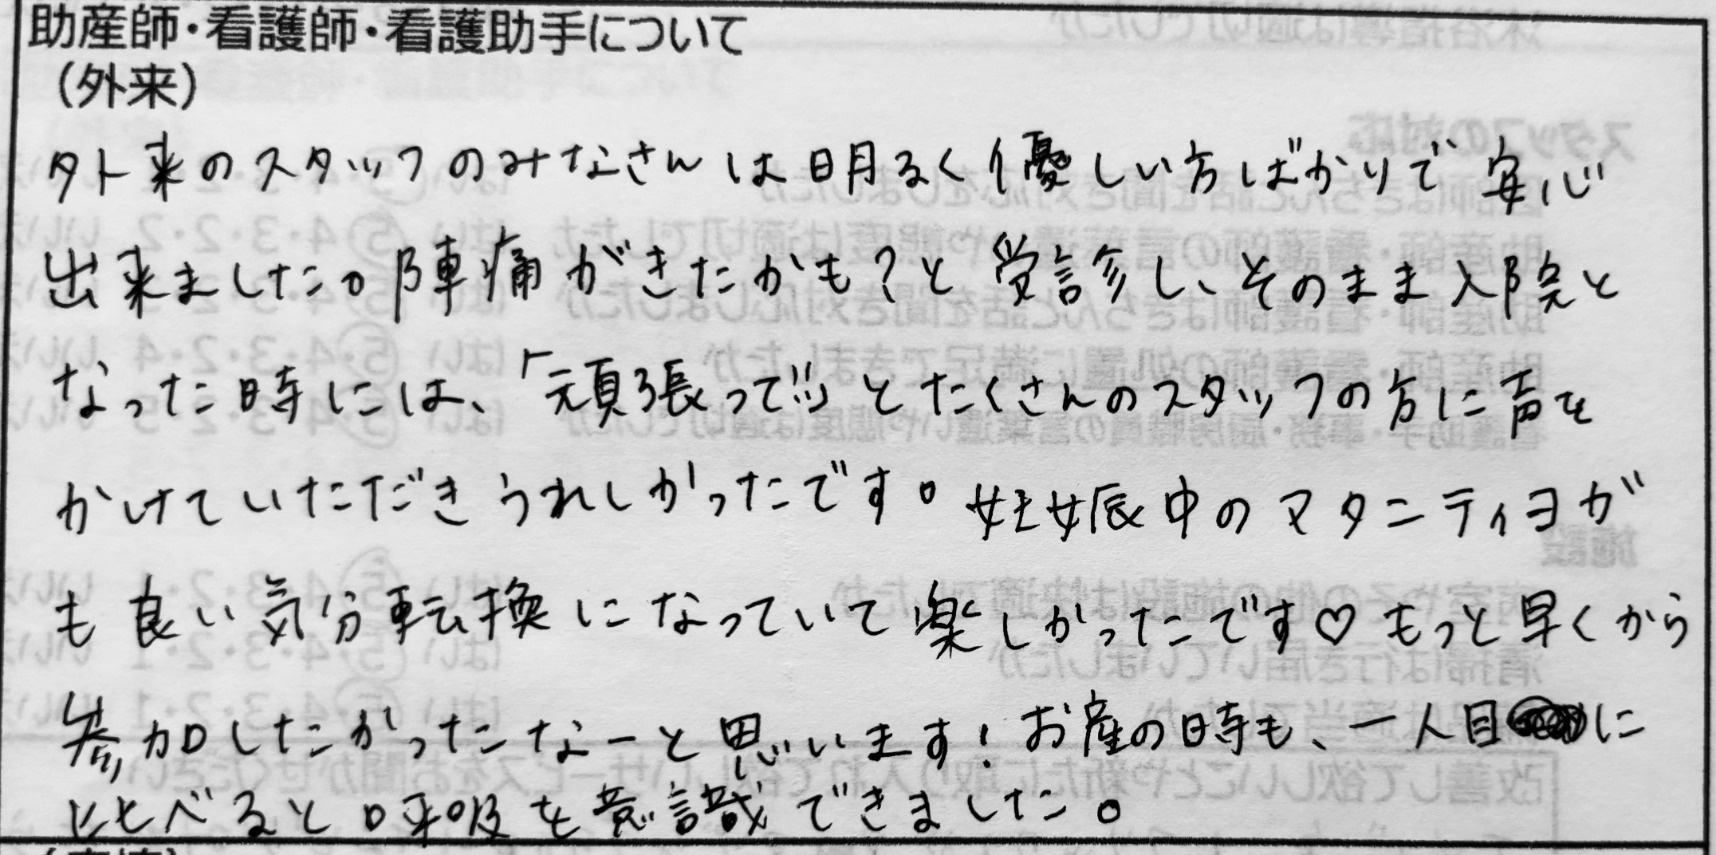 助産師・看護師・看護助手について
（外来）
外来のスタッフのみなさんは明るく優しい方ばかりで安心
出来ました。陣痛がきたかも？と受診し、そのまま入院と
なった時には、「頑張って」とたくさんのスタッフの方に声を
かけていただきうれしかったです。妊娠中のマタニティヨガ
も良い気分転換になっていて楽しかったです♡もっと早くから
参加したかったなーと思います！お産の時も、一人目に
比べると呼吸を意識できました。